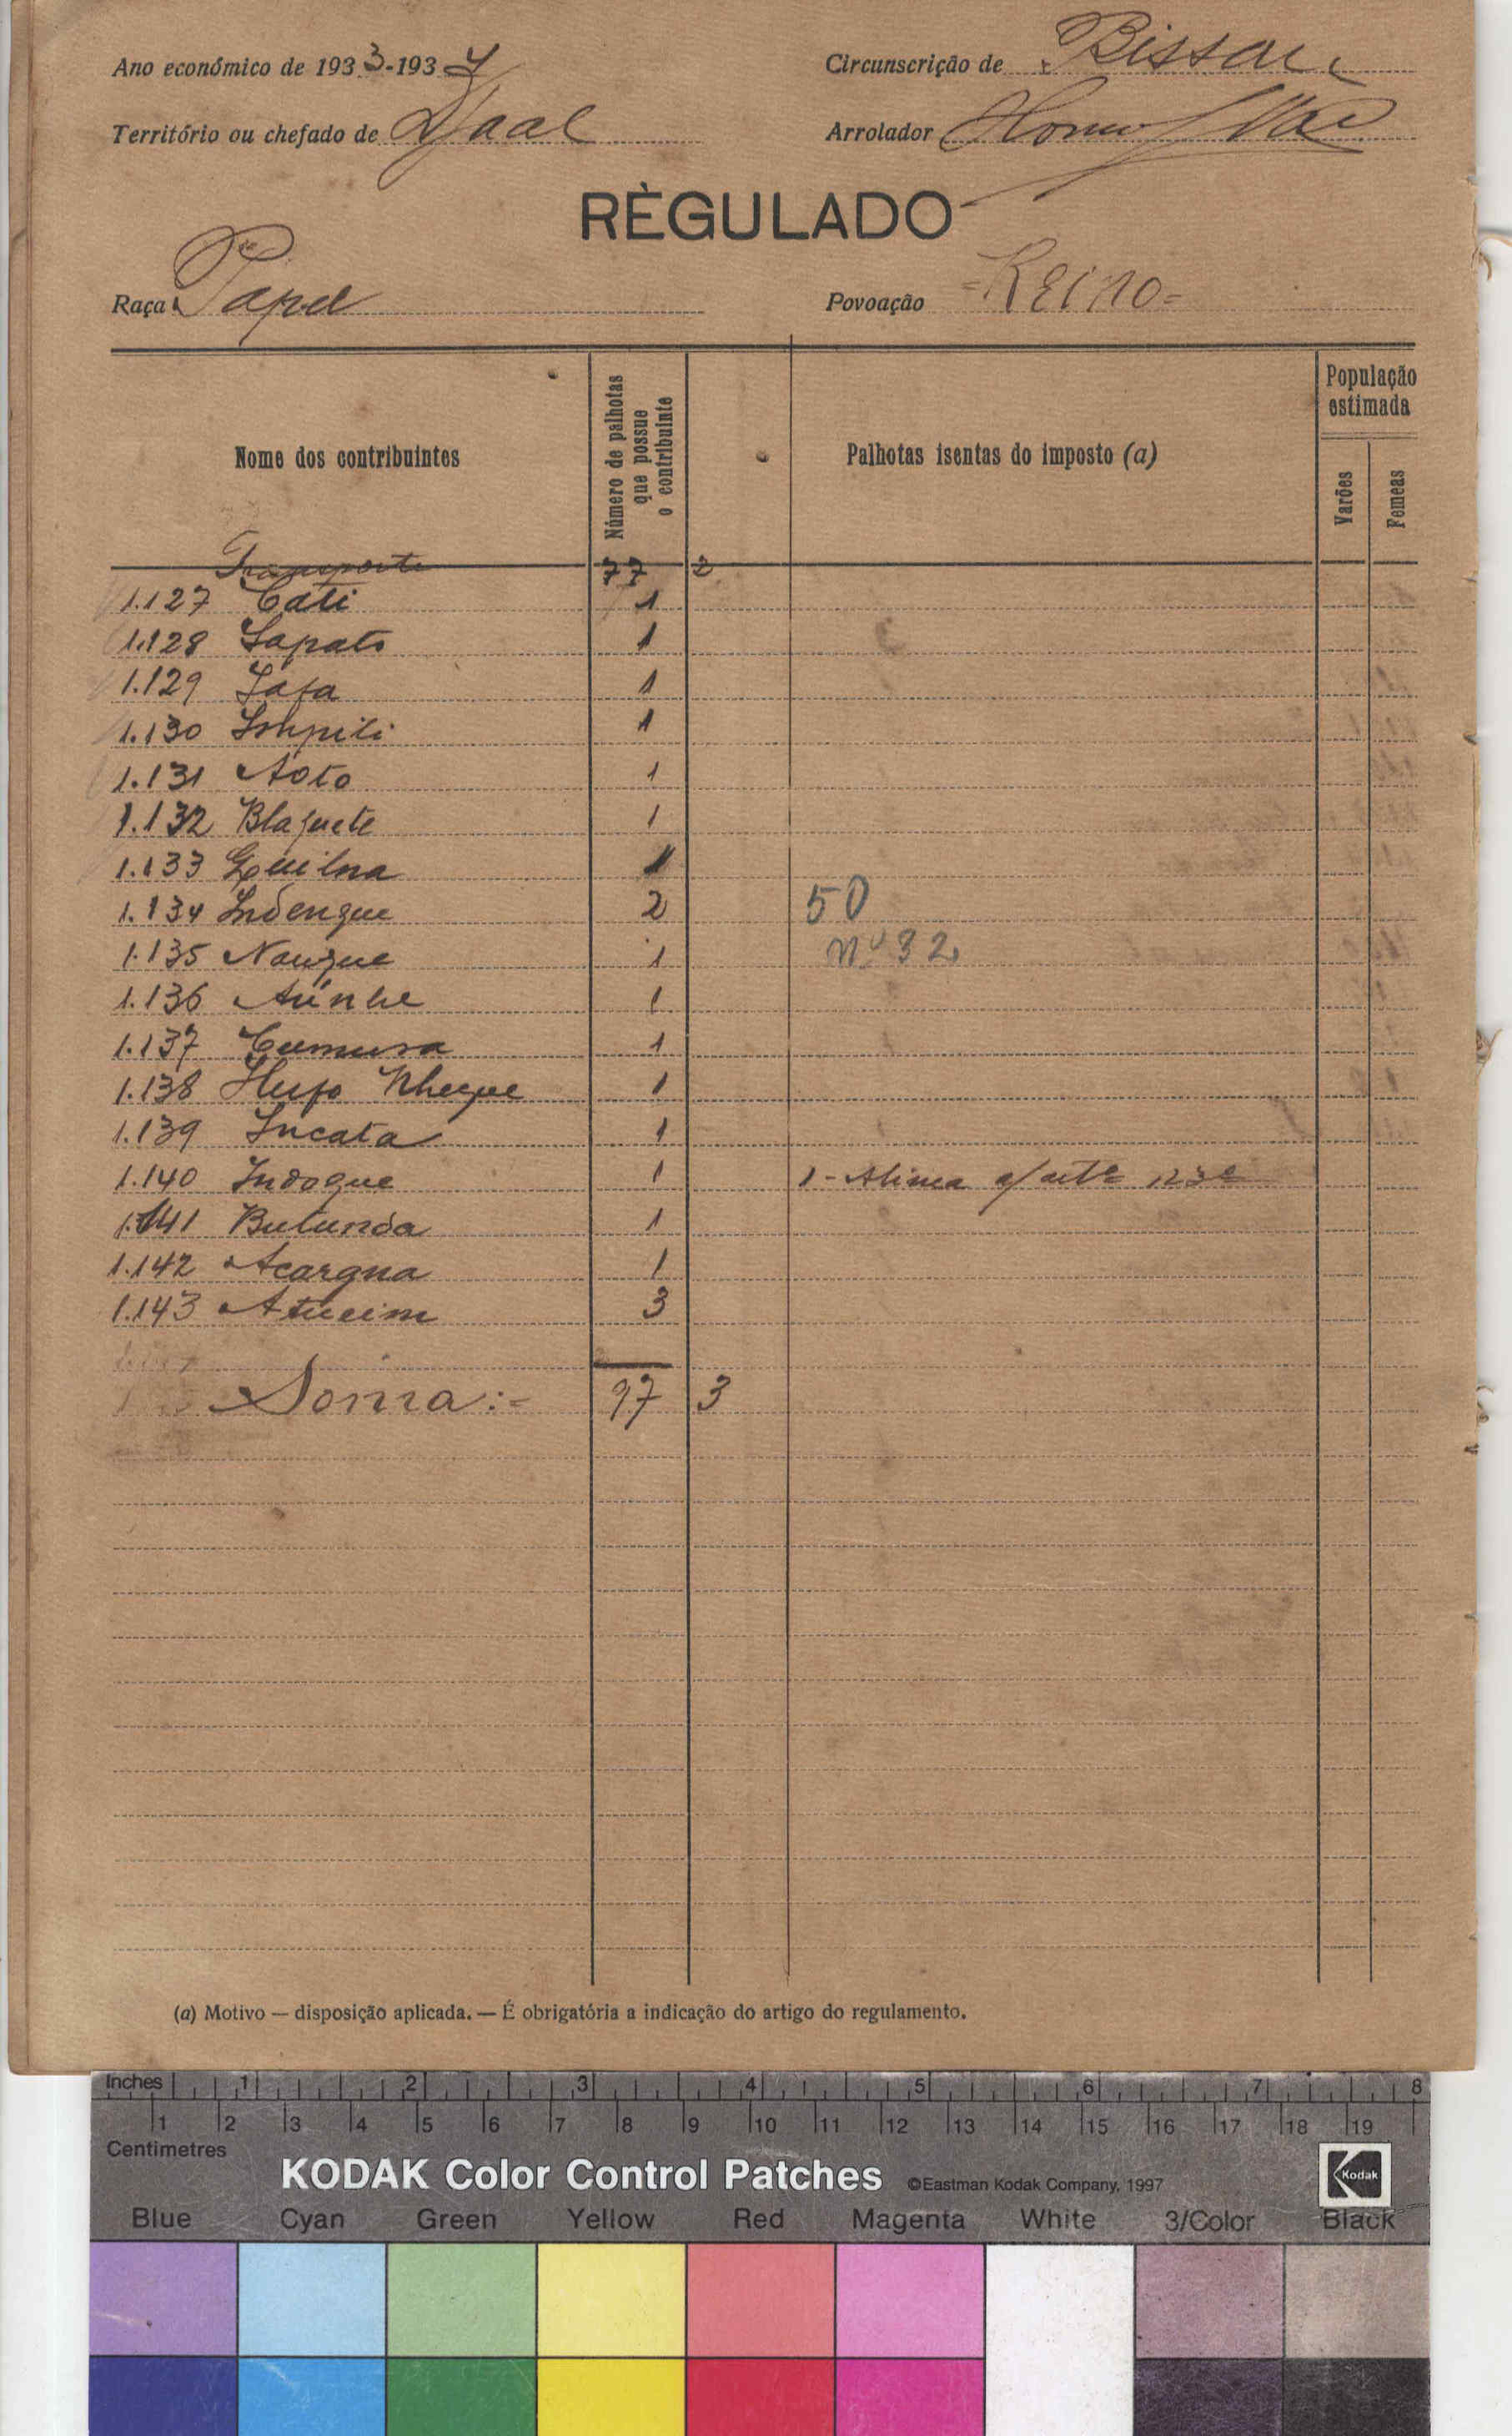 Ano económico de 1933-1934 Circunscrição de Bissau
Território ou chefado de Djaal Arrolador
RÈGULADO
Raça Papel Povoação =Reino=
Nome dos contribuintes
Número de palhotas que possue o contribuinte
Palhotas isentas do imposto (a)
População estimada
Varões
Femeas
Transporte 77 2
1.127 Cati 1
1.128 Sapato 1
1.129 Safa 1
1.130 1
1.131 Aoto 1
1.132 Blafuete 1
1.133 Quilna 1
1.134 Indengue 2 50
1.135 Naugue 1 nº 32
1.136 Aúnhe 1
1.137 Cumura 1
1.138 Hufo Nhegue 1
1.139 Incata 1
1.140 Indogue 1 1 - Alinea artº 123º
1.141 Butunda 1
1.142 Acargna 1
1.143 Atucim 3
Soma:- 97 3
(a) Motivo — disposição aplicada. — É obrigatória a indicação do artigo do regulamento.
Inches 1 2 3 4 5 6 7 8
1 2 3 4 5 6 7 8 9 10 11 12 13 14 15 16 17 18 19
Centimetres
KODAK Color Control Patches ©Eastman Kodak Company, 1997 Kodak
Blue Cyan Green Yellow Red Magenta White 3/Color Black